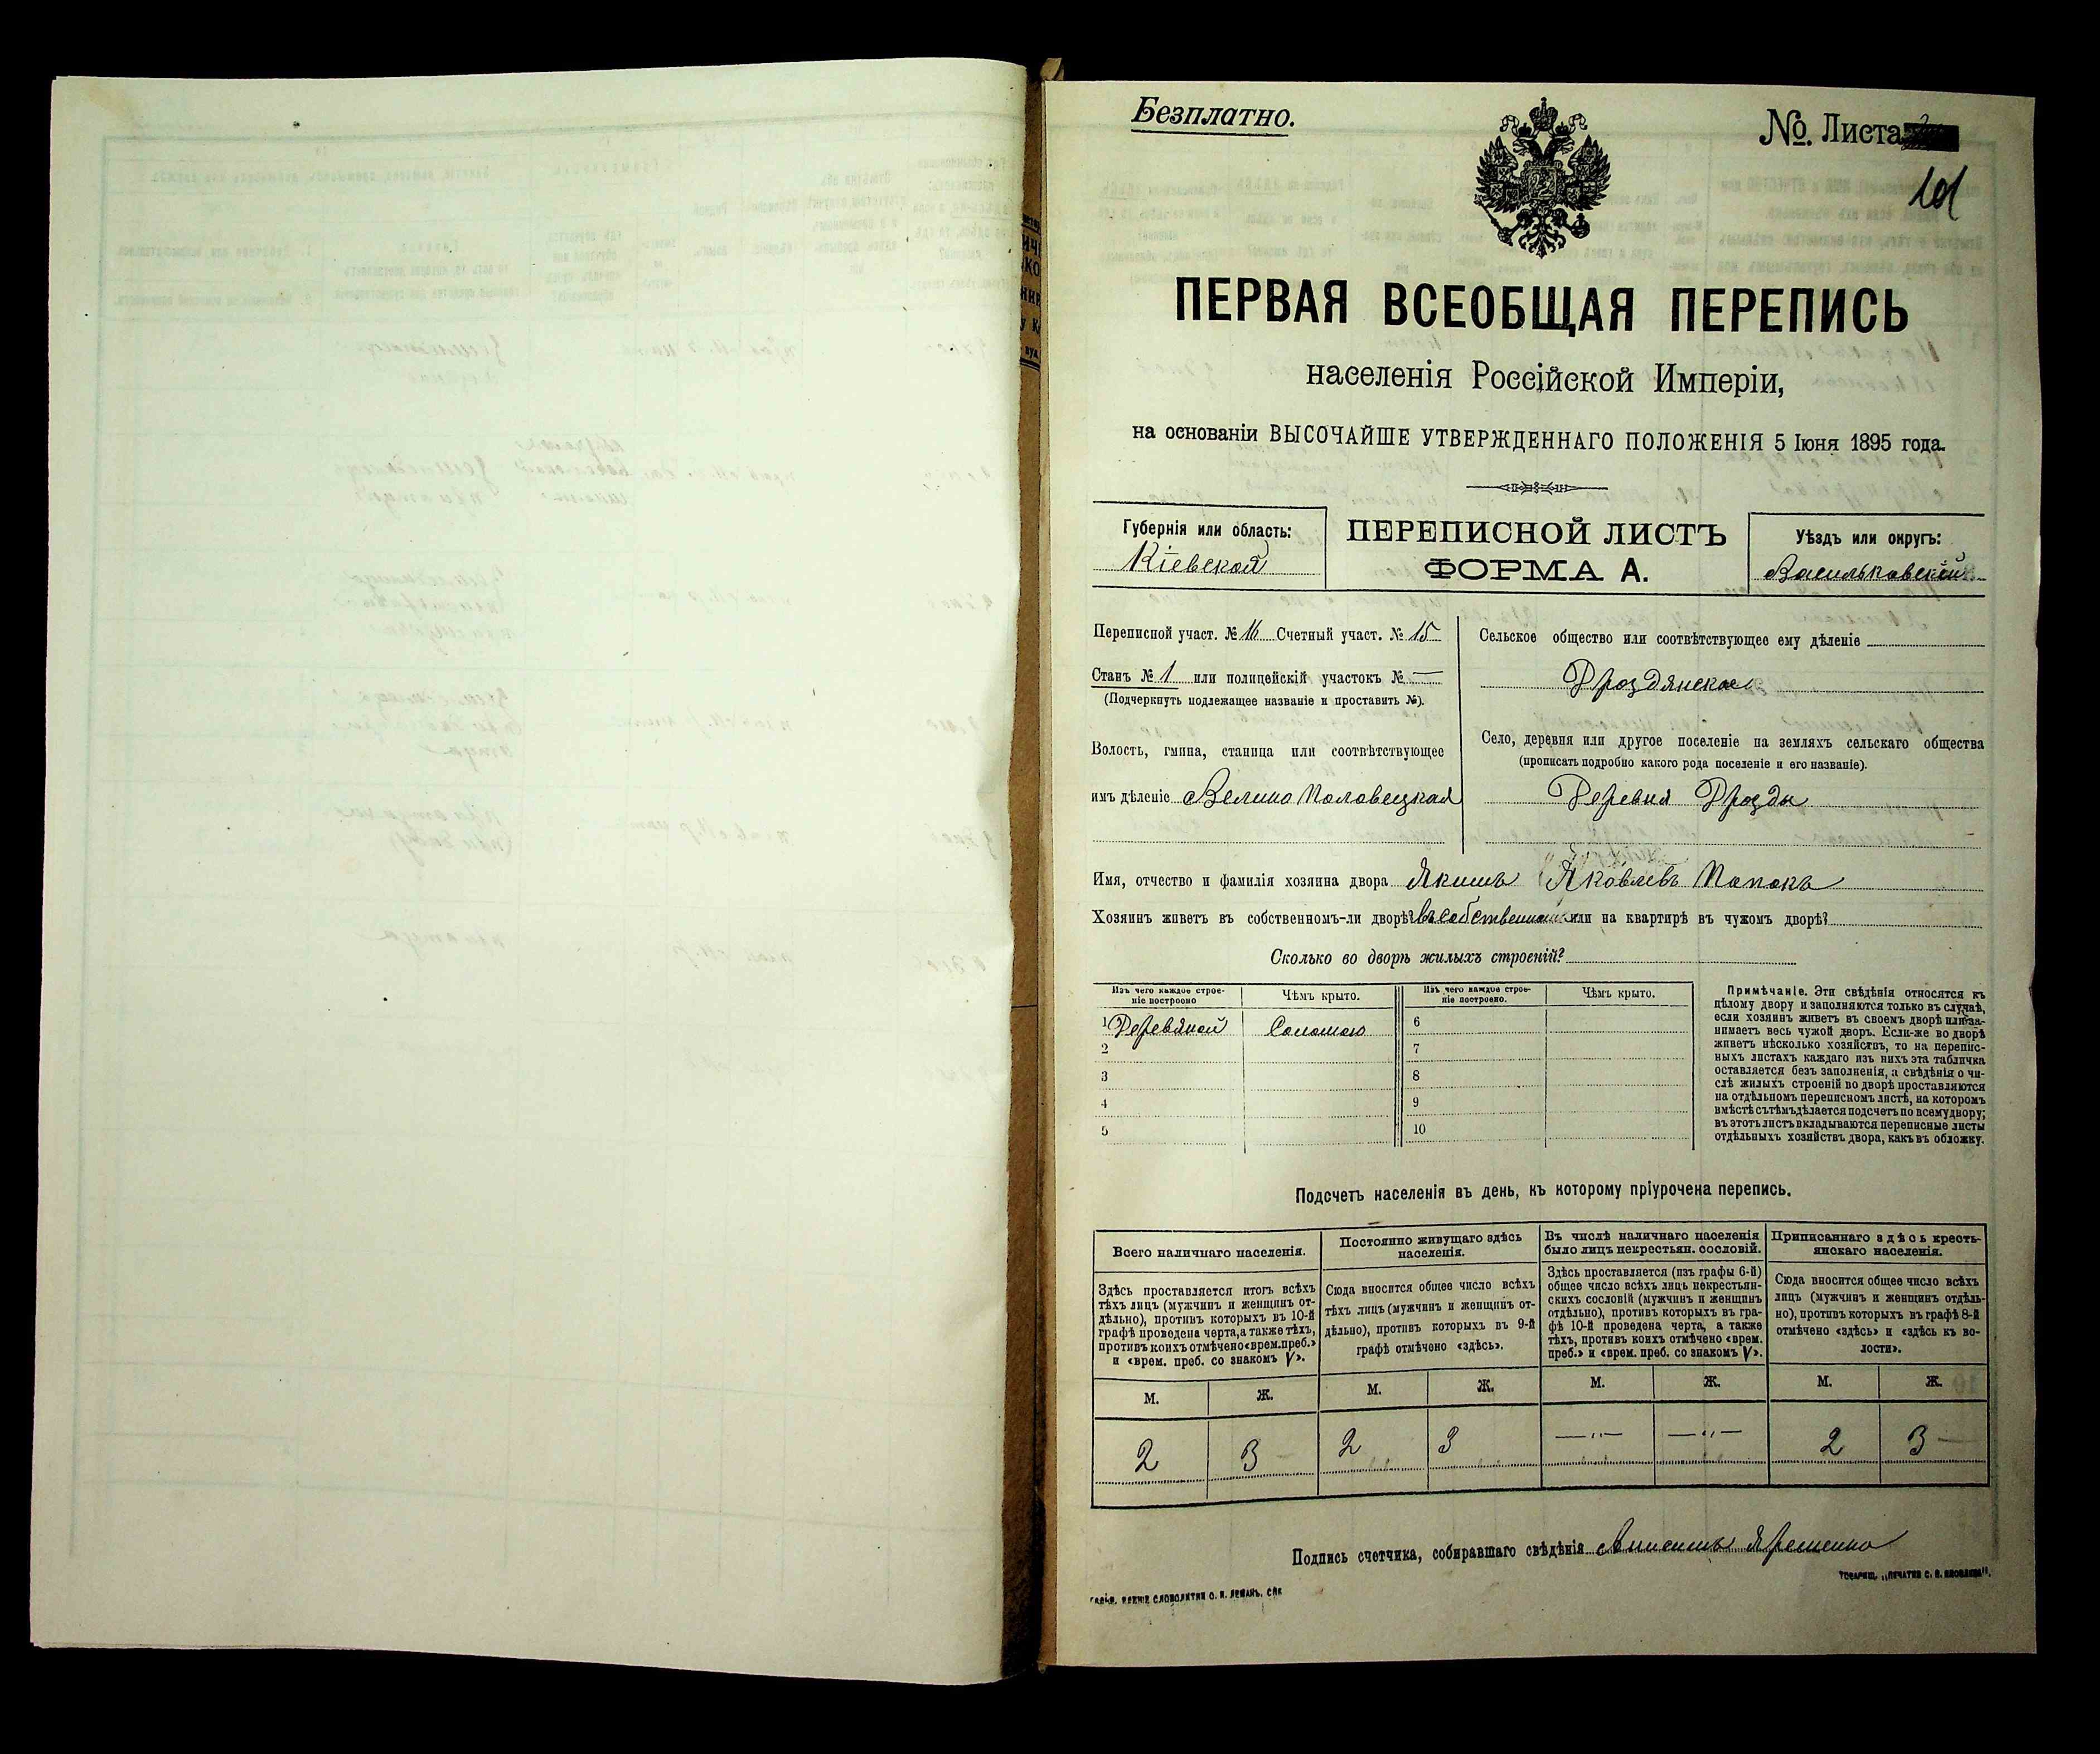 Безплатно.
№ Листа
101
ПЕРВАЯ ВСЕОБЩАЯ ПЕРЕПИСЬ
населенія Россійской Имперіи,
на основаніи ВЫСОЧАЙШЕ УТВЕРЖДЕННАГО ПОЛОЖЕНІЯ 5 Іюня 1895 года.
Губернія или область:
Кіевская
ПЕРЕПИСНОЙ ЛИСТЪ
ФОРМА А.
Уѣздъ или округъ:
Васильковскій
Переписной участ. № 16 Счетный участ. № 15
Станъ № 1 или полицейскій участокъ № —
(Подчеркнуть подлежащее названіе и проставить №).
Волость, гмина, станица или соотвѣтствующее
имъ дѣленіе Велико Половецкая
Сельское общество или соотвѣтствующее ему дѣленіе
Дроздянское
Село, деревня или другое поселеніе на земляхъ сельскаго общества
(прописать подробно какого рода поселеніе и его названіе).
Деревня Дрозды
Имя, отчество и фамилія хозяина двора Якимъ Яковлевъ Попокъ
Хозяинъ живетъ въ собственномъ-ли дворѣ? въ собственномъ или на квартирѣ въ чужомъ дворѣ?
Сколько во дворѣ жилыхъ строеній?
Изъ чего каждое строе-
ніе построено
Чѣмъ крыто.
Изъ чего каждое строе-
ніе построено.
Чѣмъ крыто.
1 Деревяной Соломою 6
2 7
3 8
4 9
5 10
Примѣчаніе. Эти свѣдѣнія относятся къ
цѣлому двору и заполняются только въ случаѣ,
если хозяинъ живетъ въ своемъ дворѣ или за-
нимаетъ весь чужой дворъ. Если-же во дворѣ
живетъ нѣсколько хозяйствъ, то на перепис-
ныхъ листахъ каждаго изъ нихъ эта табличка
оставляется безъ заполненія, а свѣдѣнія о чи-
слѣ жилыхъ строеній во дворѣ проставляются
на отдѣльномъ переписномъ листѣ, на которомъ
вмѣстѣ съ тѣмъ дѣлается подсчетъ по всему двору;
въ этотъ листъ вкладываются переписные листы
отдѣльныхъ хозяйствъ двора, какъ въ обложку.
Подсчетъ населенія въ день, къ которому пріурочена перепись.
Всего наличнаго населенія.
Постоянно живущаго здѣсь
населенія.
Въ числѣ наличнаго населенія
было лицъ некрестьян. сословій.
Приписаннаго здѣсь кресть-
янскаго населенія.
Здѣсь проставляется итогъ всѣхъ
тѣхъ лицъ (мужчинъ и женщинъ от-
дѣльно), противъ которыхъ въ 10-й
графѣ проведена черта, а также тѣхъ,
противъ коихъ отмѣчено «врем. преб.»
и «врем. преб. со знакомъ V».
Сюда вносится общее число всѣхъ
тѣхъ лицъ (мужчинъ и женщинъ от-
дѣльно), противъ которыхъ въ 9-й
графѣ отмѣчено «здѣсь».
Здѣсь проставляется (изъ графы 6-й)
общее число всѣхъ лицъ некрестьян-
скихъ сословій (мужчинъ и женщинъ
отдѣльно), противъ которыхъ въ гра-
фѣ 10-й проведена черта, а также
тѣхъ, противъ коихъ отмѣчено «врем.
преб.» и «врем. преб. со знакомъ V».
Сюда вносится общее число всѣхъ
лицъ (мужчинъ и женщинъ отдѣль-
но), противъ которыхъ въ графѣ 8-й
отмѣчено «здѣсь» и «здѣсь къ во-
лости».
М. Ж. М. Ж. М. Ж. М. Ж.
2 3 2 3 —„— —„— 2 3
Подпись счетчика, собиравшаго свѣдѣнія Анисимъ Яременко
СЛОВОЛИТНИ О. И. ЛЕМАНЪ. СПБ
ТОВАРИЩ. „ПЕЧАТНЯ С. П. ЯКОВЛЕВА".